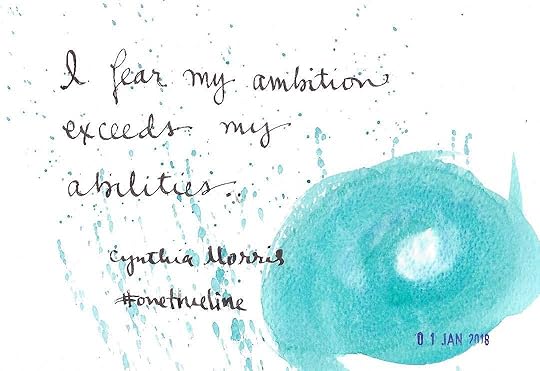 I fear my ambition
exceeds my
abilities.
Cynthia Morris
#onetrueline
01 JAN 2018